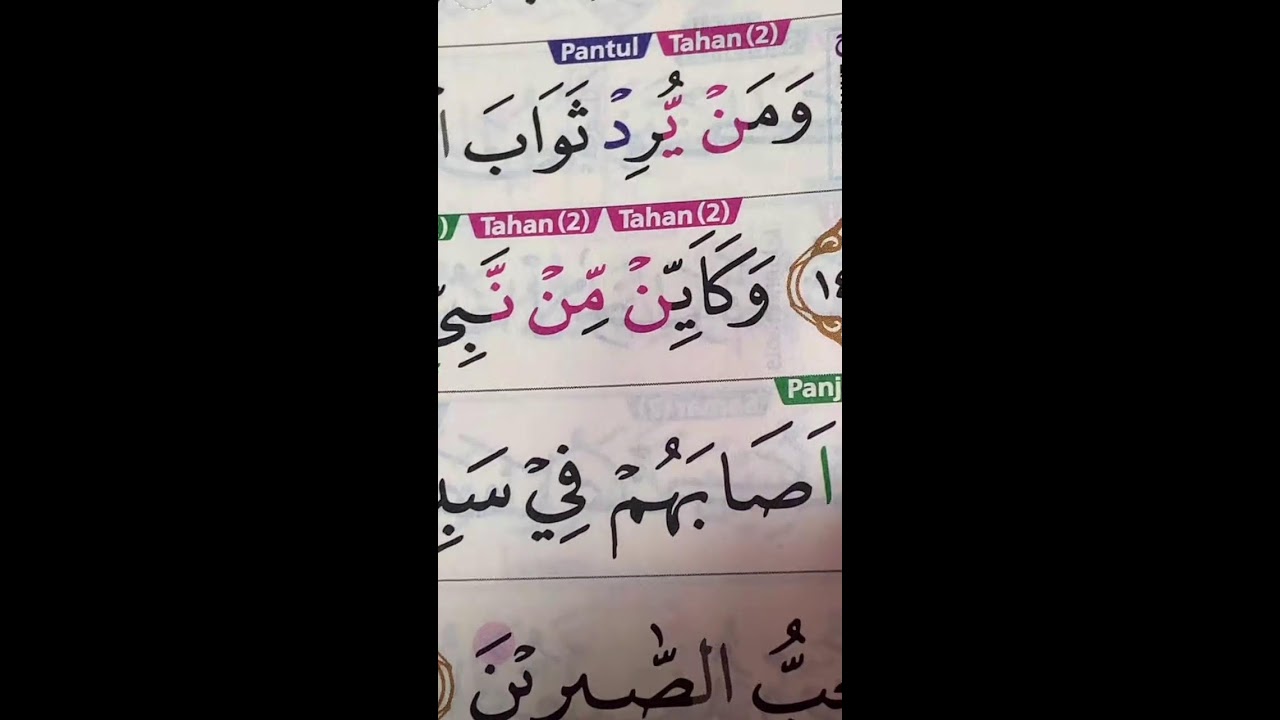 Pantul Tahan (2)
وَمَنْ يُّرِدْ ثَوَابَ
Tahan (2) Tahan (2)
وَكَاَيِّنْ مِّنْ نَّبِيّ
اَصَابَهُمْ فِيْ سَبِ
الصّٰبِرِيْنَ